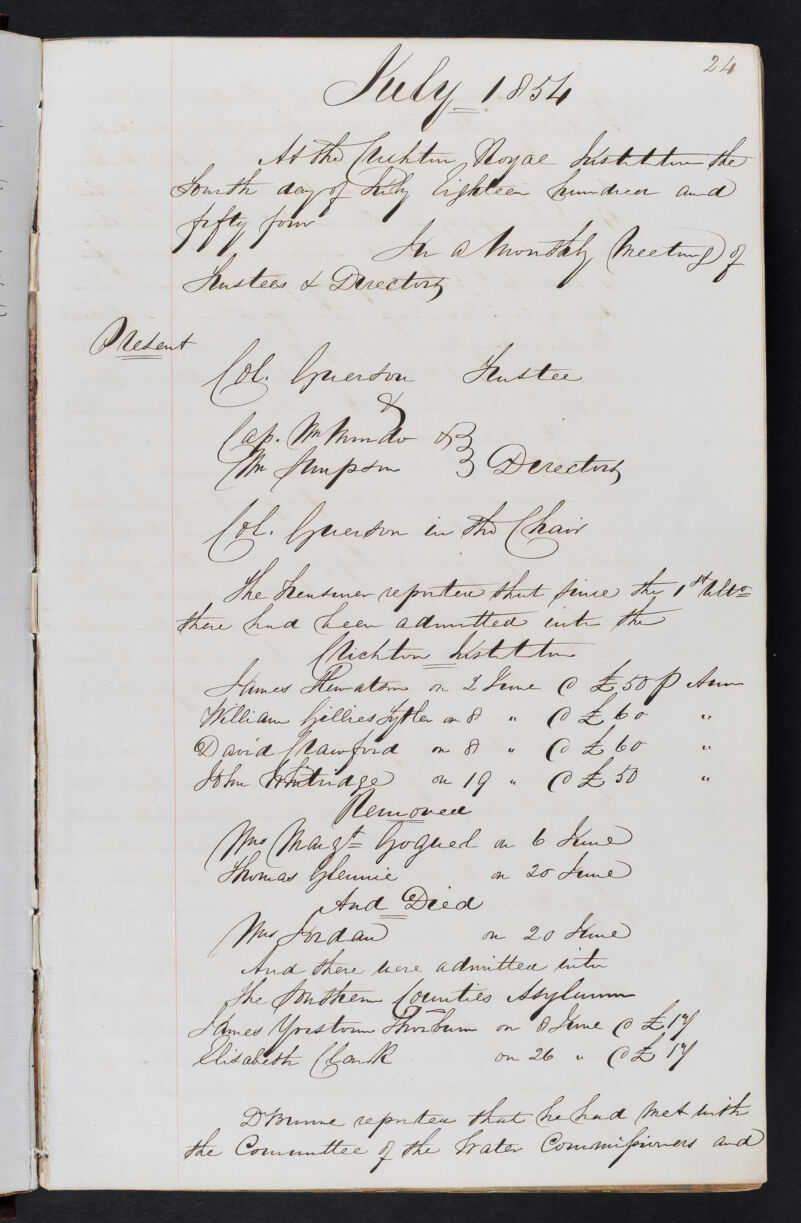 24
July 1854
At the Crichton Royal Institution the
fourth day of July Eighteen hundred and
fifty four
In a Monthly Meeting of
Trustees & Directors
Present
Col. Grierson Trustee
&
Cap. McMurdo &
Mr Simpson Directors
Col. Grierson in the Chair
The Treasurer reported that since the 1st Ulto
there had been admitted into the
Crichton Institution
James Hewatson on 2 June @ £50 p Ann
William Gillies Tytler on 8 " @ £60 "
David Crawford on 8 " @ £60 "
John Whitridge on 19 " @ £50 "
Removed
Mrs Margt Goguel on 6 June
Thomas Glennie on 20 June
And Died
Mrs Jordan on 20 June
And there were admitted into
the Southern Counties Asylum
James Thorburn on 8 June @ £17/
Elisabeth Clark on 26 " @ £17/
Dr Browne reported that he had met with
the Committee of the Water Commissioners and